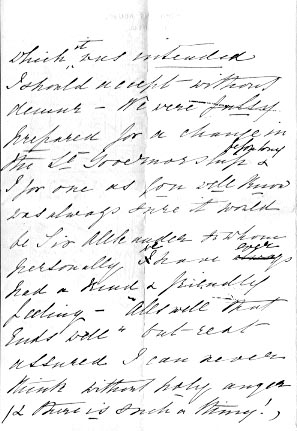 which it was intended
I should accept without
demur - We were fully
prepared for a change in
the Lt Governorship before long &
I for one as you well know
was always sure it would
be Sir Alexander to whom
personally I have ever
had a kind & friendly
feeling - "Alls well that
Ends well" but rest
assured I can never
think without holy anger
(& there is such a thing!,